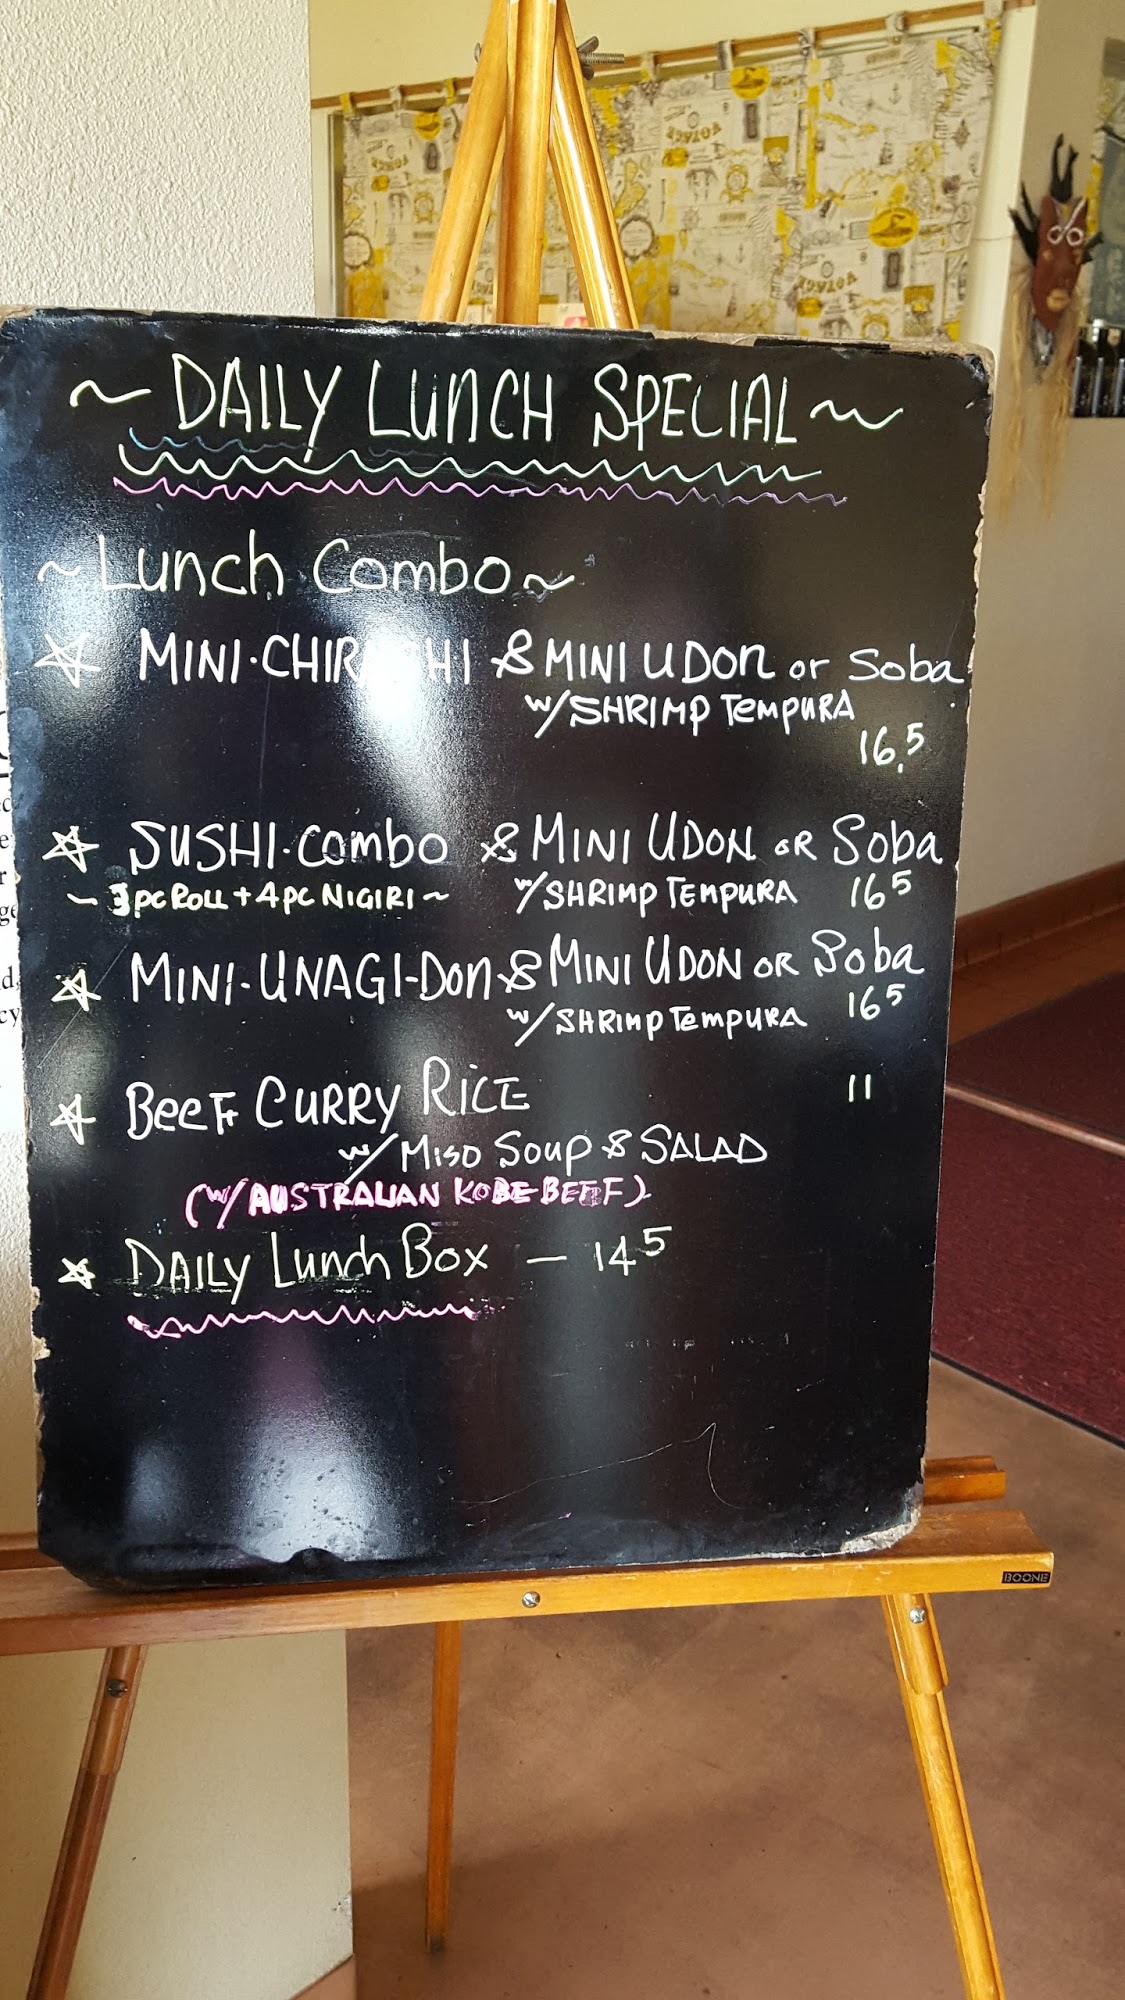 ~ DAILY LUNCH SPECIAL ~
~ Lunch Combo ~
☆ MINI·CHIRASHI & MINI UDON or Soba
w/SHRIMP TEMPURA
16.5
☆ SUSHI·combo & MINI UDON OR Soba
~ 3pc ROLL + 4pc NIGIRI ~ w/SHRIMP TEMPURA 16 5
☆ MINI·UNAGI-DON & MINI UDON OR Soba
w/SHRIMP TEMPURA 16 5
☆ BEEF CURRY RICE 11
w/ MISO SOUP & SALAD
(W/AUSTRALIAN KOBE BEEF)
☆ DAILY Lunch Box — 14 5
BOONE